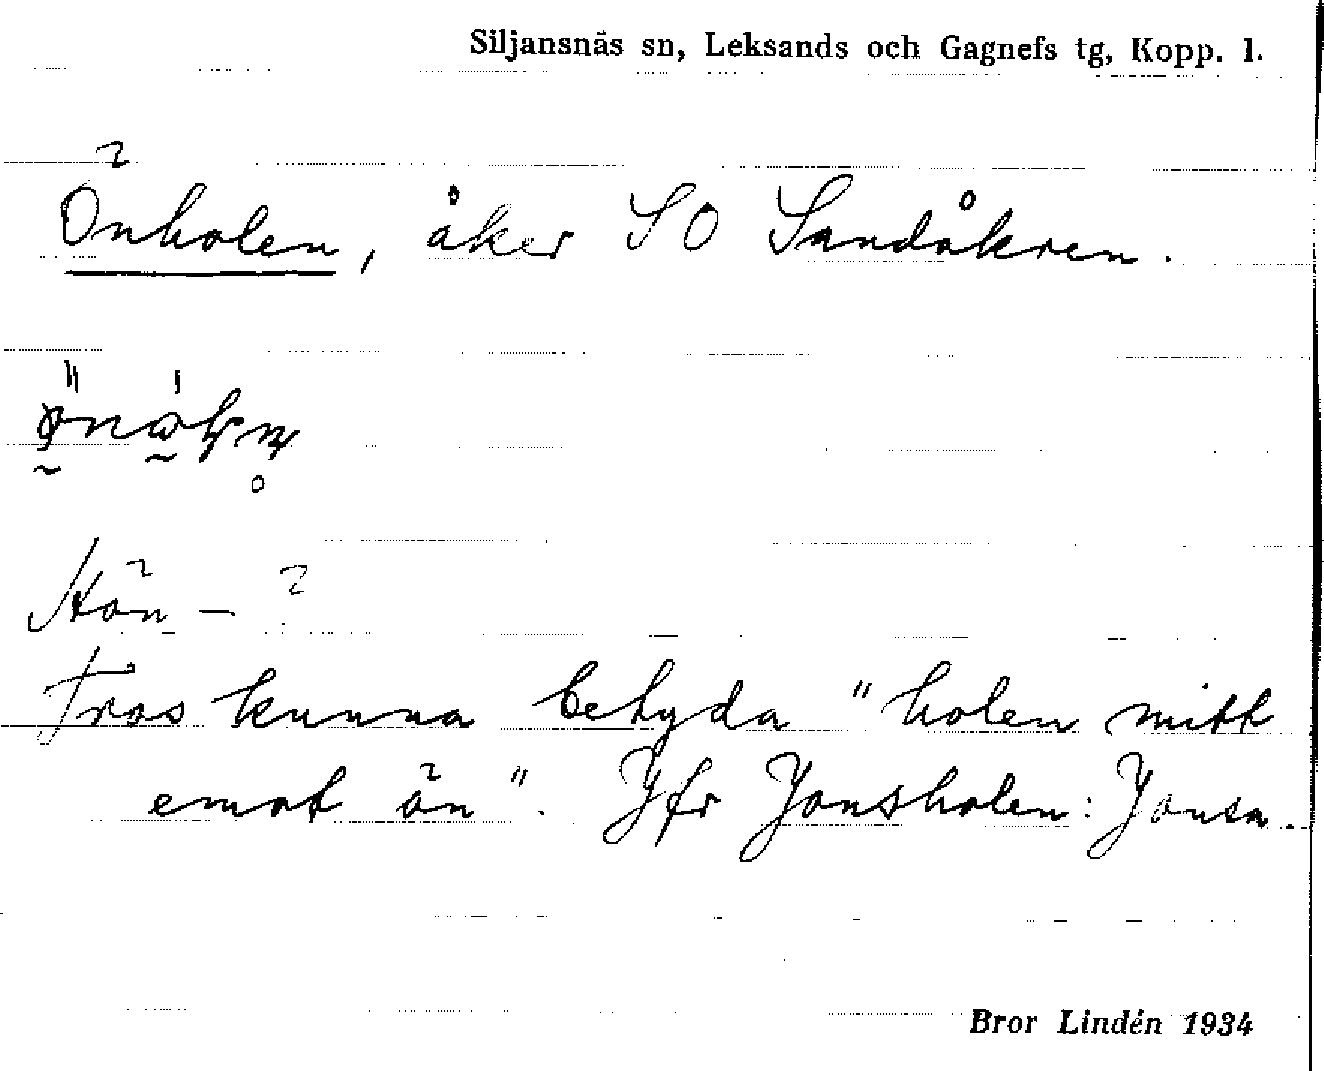 Siljansnäs sn, Leksands och Gagnefs tg, Kopp. l.
Önholen, åker SO Sandåkren.
Hön - ?
Tros kunna betyda "holen mitt
emot ön". Jfr Jonsholen: Jonsa.
Bror Lindén 1934